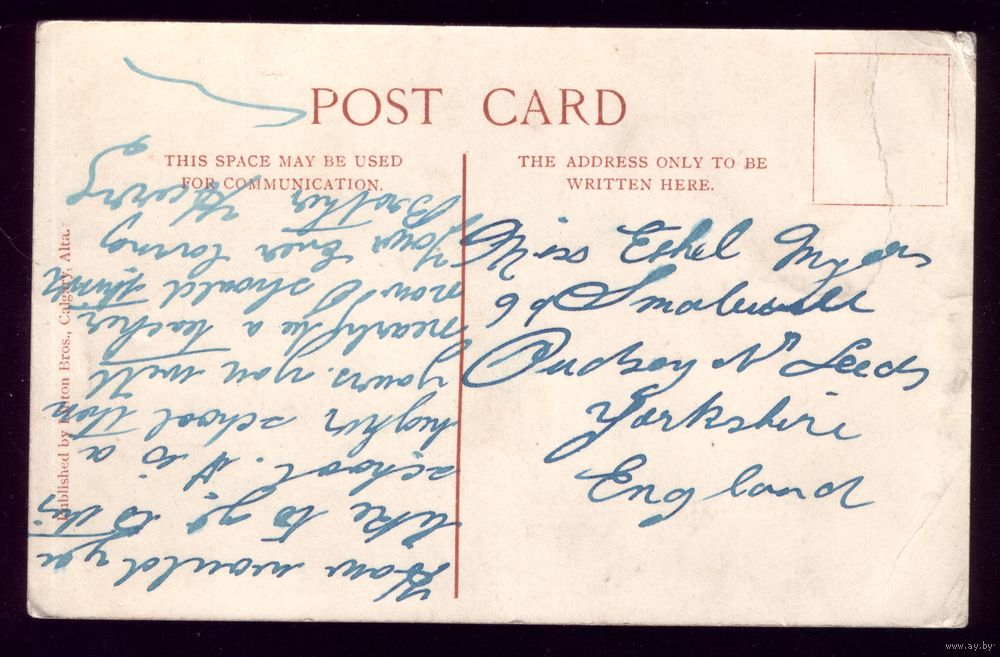 POST CARD
THIS SPACE MAY BE USED
FOR COMMUNICATION.
THE ADDRESS ONLY TO BE
WRITTEN HERE.
Published by Hutton Bros., Calgary, Alta.
How would you
like to go to this
school. It is a
higher school then
yours. you will
nearly be a teacher
now I should think
Your Ever loving
Brother
Miss Ethel Myers
69 Smalewell
Pudsey Nr Leeds
Yorkshire
England
www.ay.by